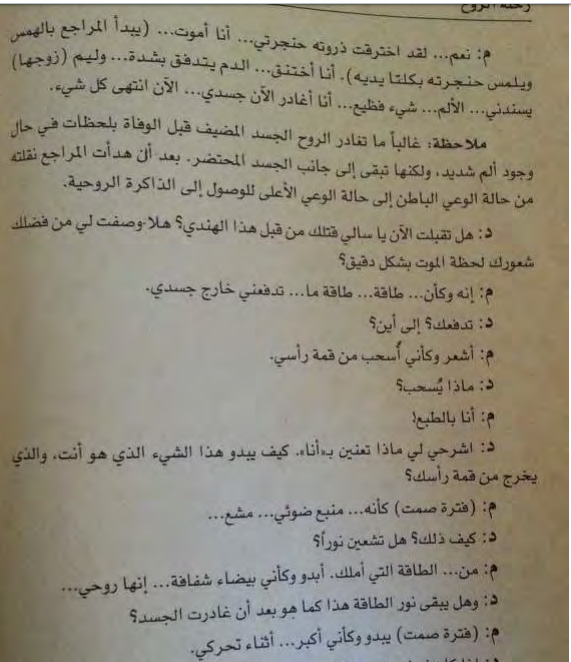 رحلة الروح
م: نعم... لقد اخترقت ذروته حنجرتي... أنا أموت... (يبدأ المراجع بالهمس
ويلمس حنجرته بكلتا يديه). أنا أختنق... الدم يتدفق بشدة... وليم (زوجها)
يسندني... الألم... شيء فظيع... أنا أغادر الآن جسدي... الآن انتهى كل شيء.
ملاحظة: غالباً ما تغادر الروح الجسد المضيف قبل الوفاة بلحظات في حال
وجود ألم شديد، ولكنها تبقى إلى جانب الجسد المحتضر. بعد أن هدأت المراجع نقلته
من حالة الوعي الباطن إلى حالة الوعي الأعلى للوصول إلى الذاكرة الروحية.
د: هل تقبلت الآن يا سالي قتلك من قبل هذا الهندي؟ هلا وصفت لي من فضلك
شعورك لحظة الموت بشكل دقيق؟
م: إنه وكأن... طاقة... طاقة ما... تدفعني خارج جسدي.
د: تدفعك؟ إلى أين؟
م: أشعر وكأني أُسحب من قمة رأسي.
د: ماذا يُسحب؟
م: أنا بالطبع!
د: اشرحي لي ماذا تعنين بـ«أنا». كيف يبدو هذا الشيء الذي هو أنت، والذي
يخرج من قمة رأسك؟
م: (فترة صمت) كأنه... منبع ضوئي... مشع...
د: كيف ذلك؟ هل تشعين نوراً؟
م: من... الطاقة التي أملك. أبدو وكأني بيضاء شفافة... إنها روحي...
د: وهل يبقى نور الطاقة هذا كما هو بعد أن غادرت الجسد؟
م: (فترة صمت) يبدو وكأني أكبر... أثناء تحركي.